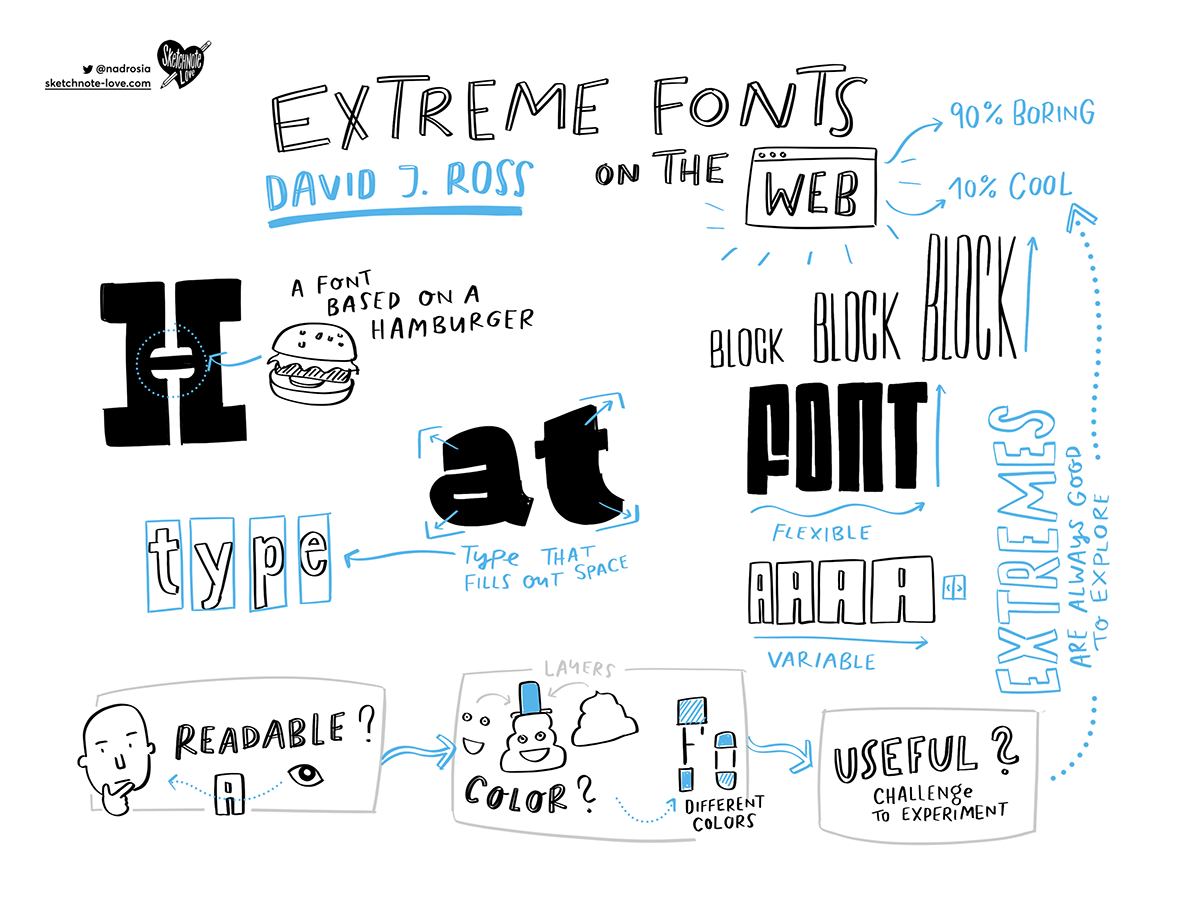 @nadrosia
sketchnote-love.com
SKETCHNOTE
LOVE
EXTREME FONTS
ON THE
WEB
DAVID J. ROSS
90% BORING
10% COOL
A FONT
BASED ON A
HAMBURGER
H
BLOCK BLOCK BLOCK
FONT
FLEXIBLE
AAAA
</>
VARIABLE
EXTREMES
ARE ALWAYS GOOD
TO EXPLORE
at
TYPE THAT
FILLS OUT SPACE
type
READABLE?
A
LAYERS
COLOR?
DIFFERENT
COLORS
USEFUL?
CHALLENGE
TO EXPERIMENT